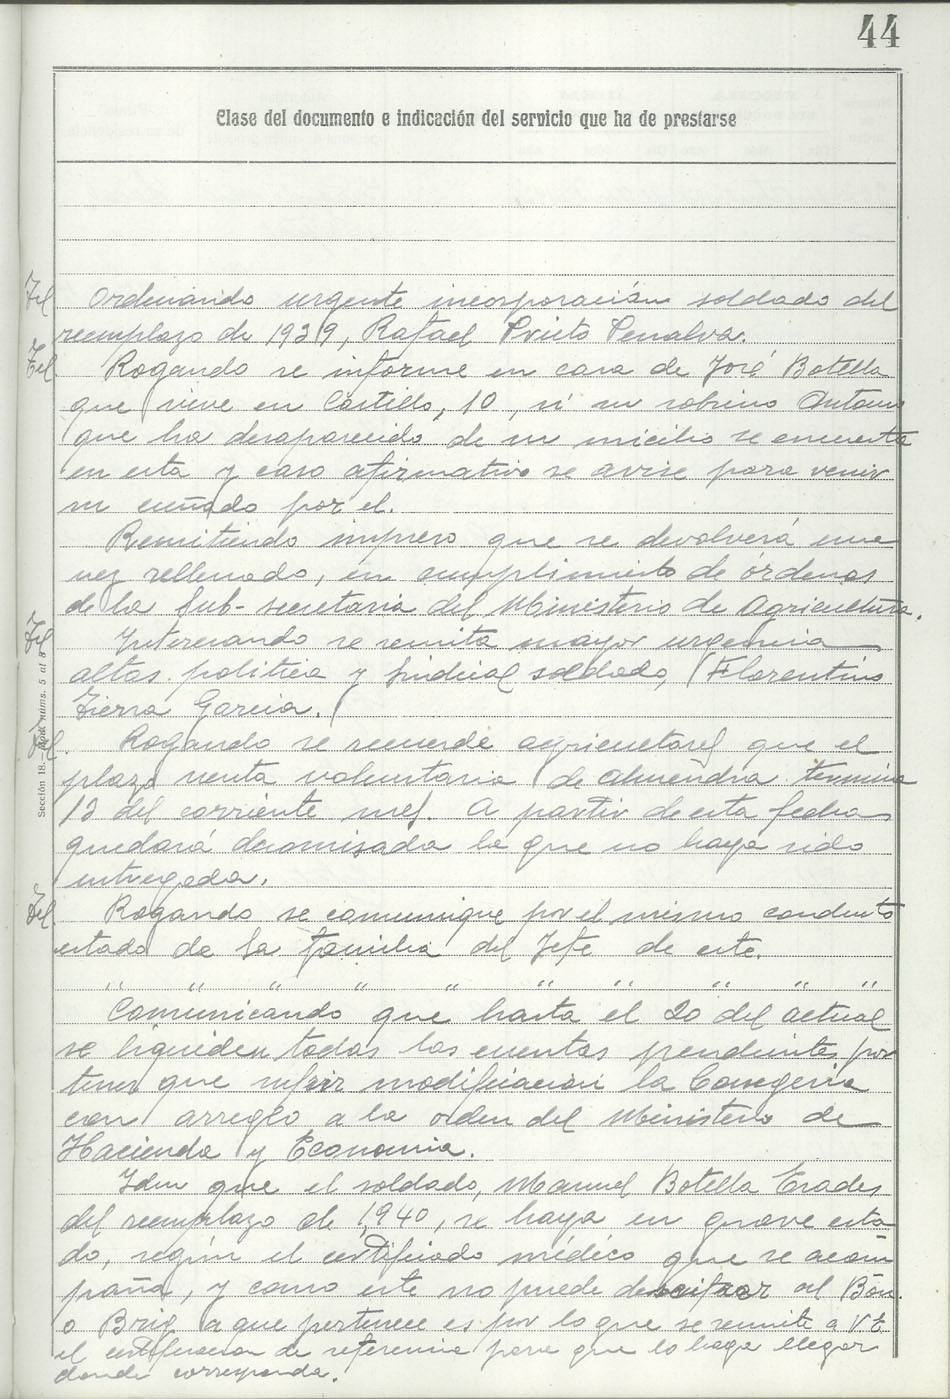 44
Clase del documento e indicación del servicio que ha de prestarse
Tel Ordenando urgente incorporación soldado del
reemplazo de 1939, Rafael Prieto Penalva.
Tel Rogando se informe en casa de José Botella
que vive en Castillo, 10, si su sobrino Antonio
que ha desaparecido de su micilio se encuentra
en esta y caso afirmativo se avise para venir
su cuñado por el.
Remitiendo impreso que se devolverá una
vez rellenado, en cumplimiento de órdenes
de la Sub-secretaria del Ministerio de Agricultura.
Tel Interesando se remita mayor urgencia
altas politica y sindical soldado, Florentino
Sierra Garcia.
Tel. Rogando se recuerde agricultores que el
plazo venta voluntaria de almendra termina
13 del corriente mes. A partir de esta fecha
quedará decomisada la que no haya sido
entregada.
Tel Rogando se comunique por el mismo conducto
estado de la familia del Jefe de este.
" " " " " " " " " "
Comunicando que hasta el 20 del actual
se liquiden todas las cuentas pendientes por
tener que sufrir modificación la Consegeria
con arreglo a la orden del Ministerio de
Hacienda y Economia.
Idem que el soldado, Manuel Botella Erades
del reemplazo de 1,940, se haya en grave esta
do, según el certificado médico que se acom
paña, y como este no puede al Bón.
o Brig a que pertenece es por lo que se remite a V E
el certificacion de referencia para que lo haga llegar
donde corresponda.
Sección 18.—Mod. núms. 5 al 8